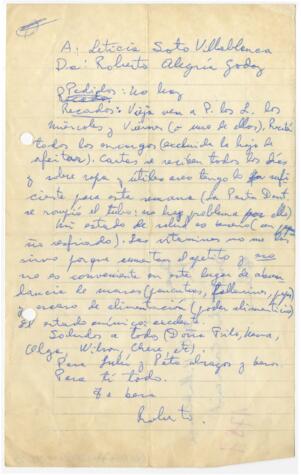 A: Leticia Soto Villablanca
De: Roberto Alegría Godoy
Pedidos: no hay
Recados: Vieja ven a P. los L. los
miércoles y Viernes (o uno de ellos), Recibí
todos los encargos (excluída la hoja de
afeitar). Cartas se reciben todos los días
y sobre ropa y útiles aseo tengo lo sufi
ciente para esta semana (La Pasta Dent.
se rompió el tubo: no hay problema por ello)
Mi estado de salud es sereno (un
resfriado). Las vitaminas no me
sirven porque aumentan el apetito y no
no es conveniente en este lugar de abun
dancia de masas (porotitos, tallarines,
y escaso de alimentación (poder alimenticio)
El estado anímico: excelente.
Saludos a todos (Doña
Olga, Wilson, Chere, etc)
Para abrazos y besos
Para tí todo.
Te besa
Roberto.